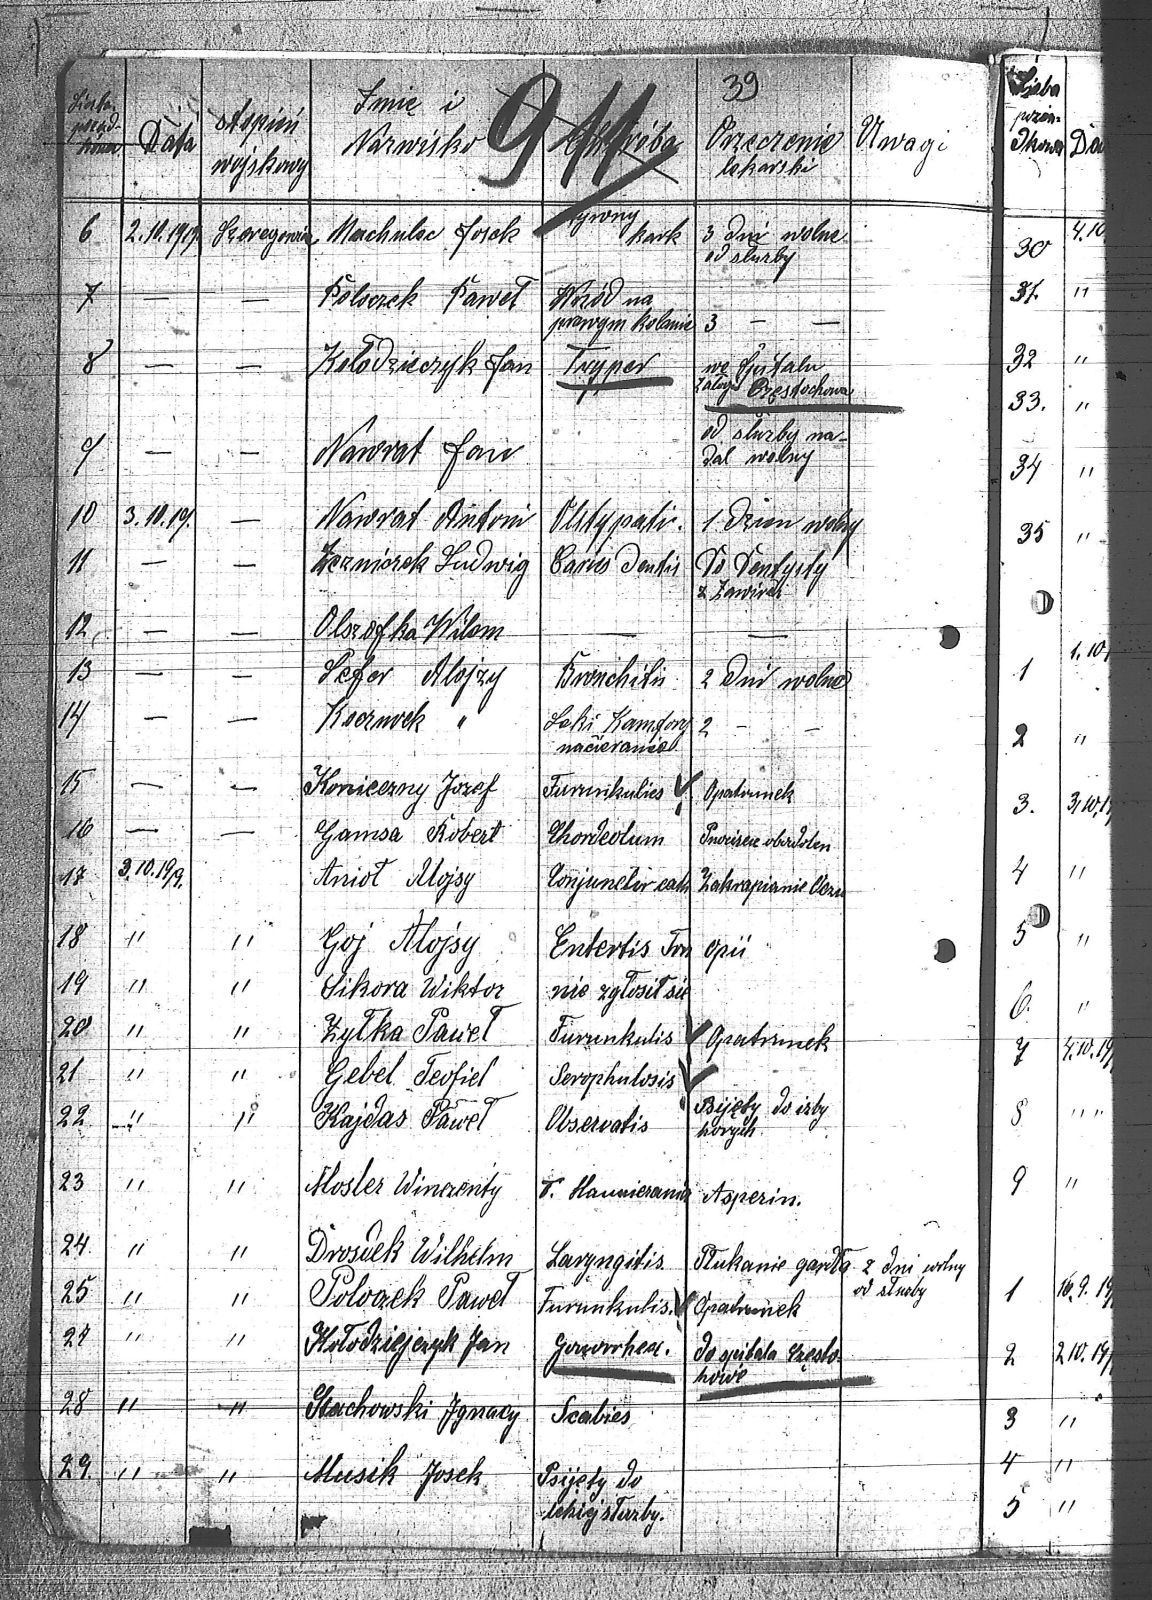 39
911
Liczba porząd-kowa Data stopień wojskowy Imię i Nazwisko Choroba Orzeczenie lekarski Uwagi
6 2.10.1919 Szeregowiec Machulec Josek sztywny kark 3 dni wolne od służby
7 — — Poloczek Paweł Wrzód na prawym kolanie 3 — —
8 — — Kołodzieczyk Jan Tryper we Spitalu załogi Częstochowa
9 — — Nawrat Jan od służby na-dal wolny
10 3.10.19. — Nawrat Antoni Obstypatir. 1 Dzien wolny
11 — — Ludwig Caries Dentis Do Dentysty z Zawierc
12 — — Olszofka Wilem — —
13 — — Sefer Alojzy Bronchitis 2 Dni wolne
14 — — " 2 — —
nacieranie
15 — — Konieczny Jozef Furunkulies Opatrunek
16 — — Gamsa Robert Chordeolum
17 3.10.19. Anioł Alojsy Conjunctiv cath Zakrapianie Oczu
18 " " Goj Alojsy Entertis opii
19 " " Sikora Wiktor nie zgłosił sie
20 " " Zytka Paweł Furunkulis Opatrunek
21 " " Gebel Teofiel Scrophulosis
22 " " Kajdas Paweł Observatis Psijęty do izby horych
23 " " Mosler Winczenty Asperin.
24 " " Drosdek Wilhelm Laryngitis Płukanie gardła 2 dni wolny od służby
25 " " Poloczek Paweł Furunkulis. Opatrunek
27 " " Kołodziejczyk Jan Gonorrhea. do spitala Często-howe
28 " " Stachowski Ignacy Scabies
29. " " Musik Josek Psijęty do lekiej służby.
Liczba porząd-kowa Da
30 4.10
31. "
32 "
33. "
34 "
35 "
1 1.10
2 "
3. 3.10.1
4 "
5 "
6. "
7 4.10.19
8 " "
9 "
1 16.9.19
2 2.10.19
3 "
4 "
5 "